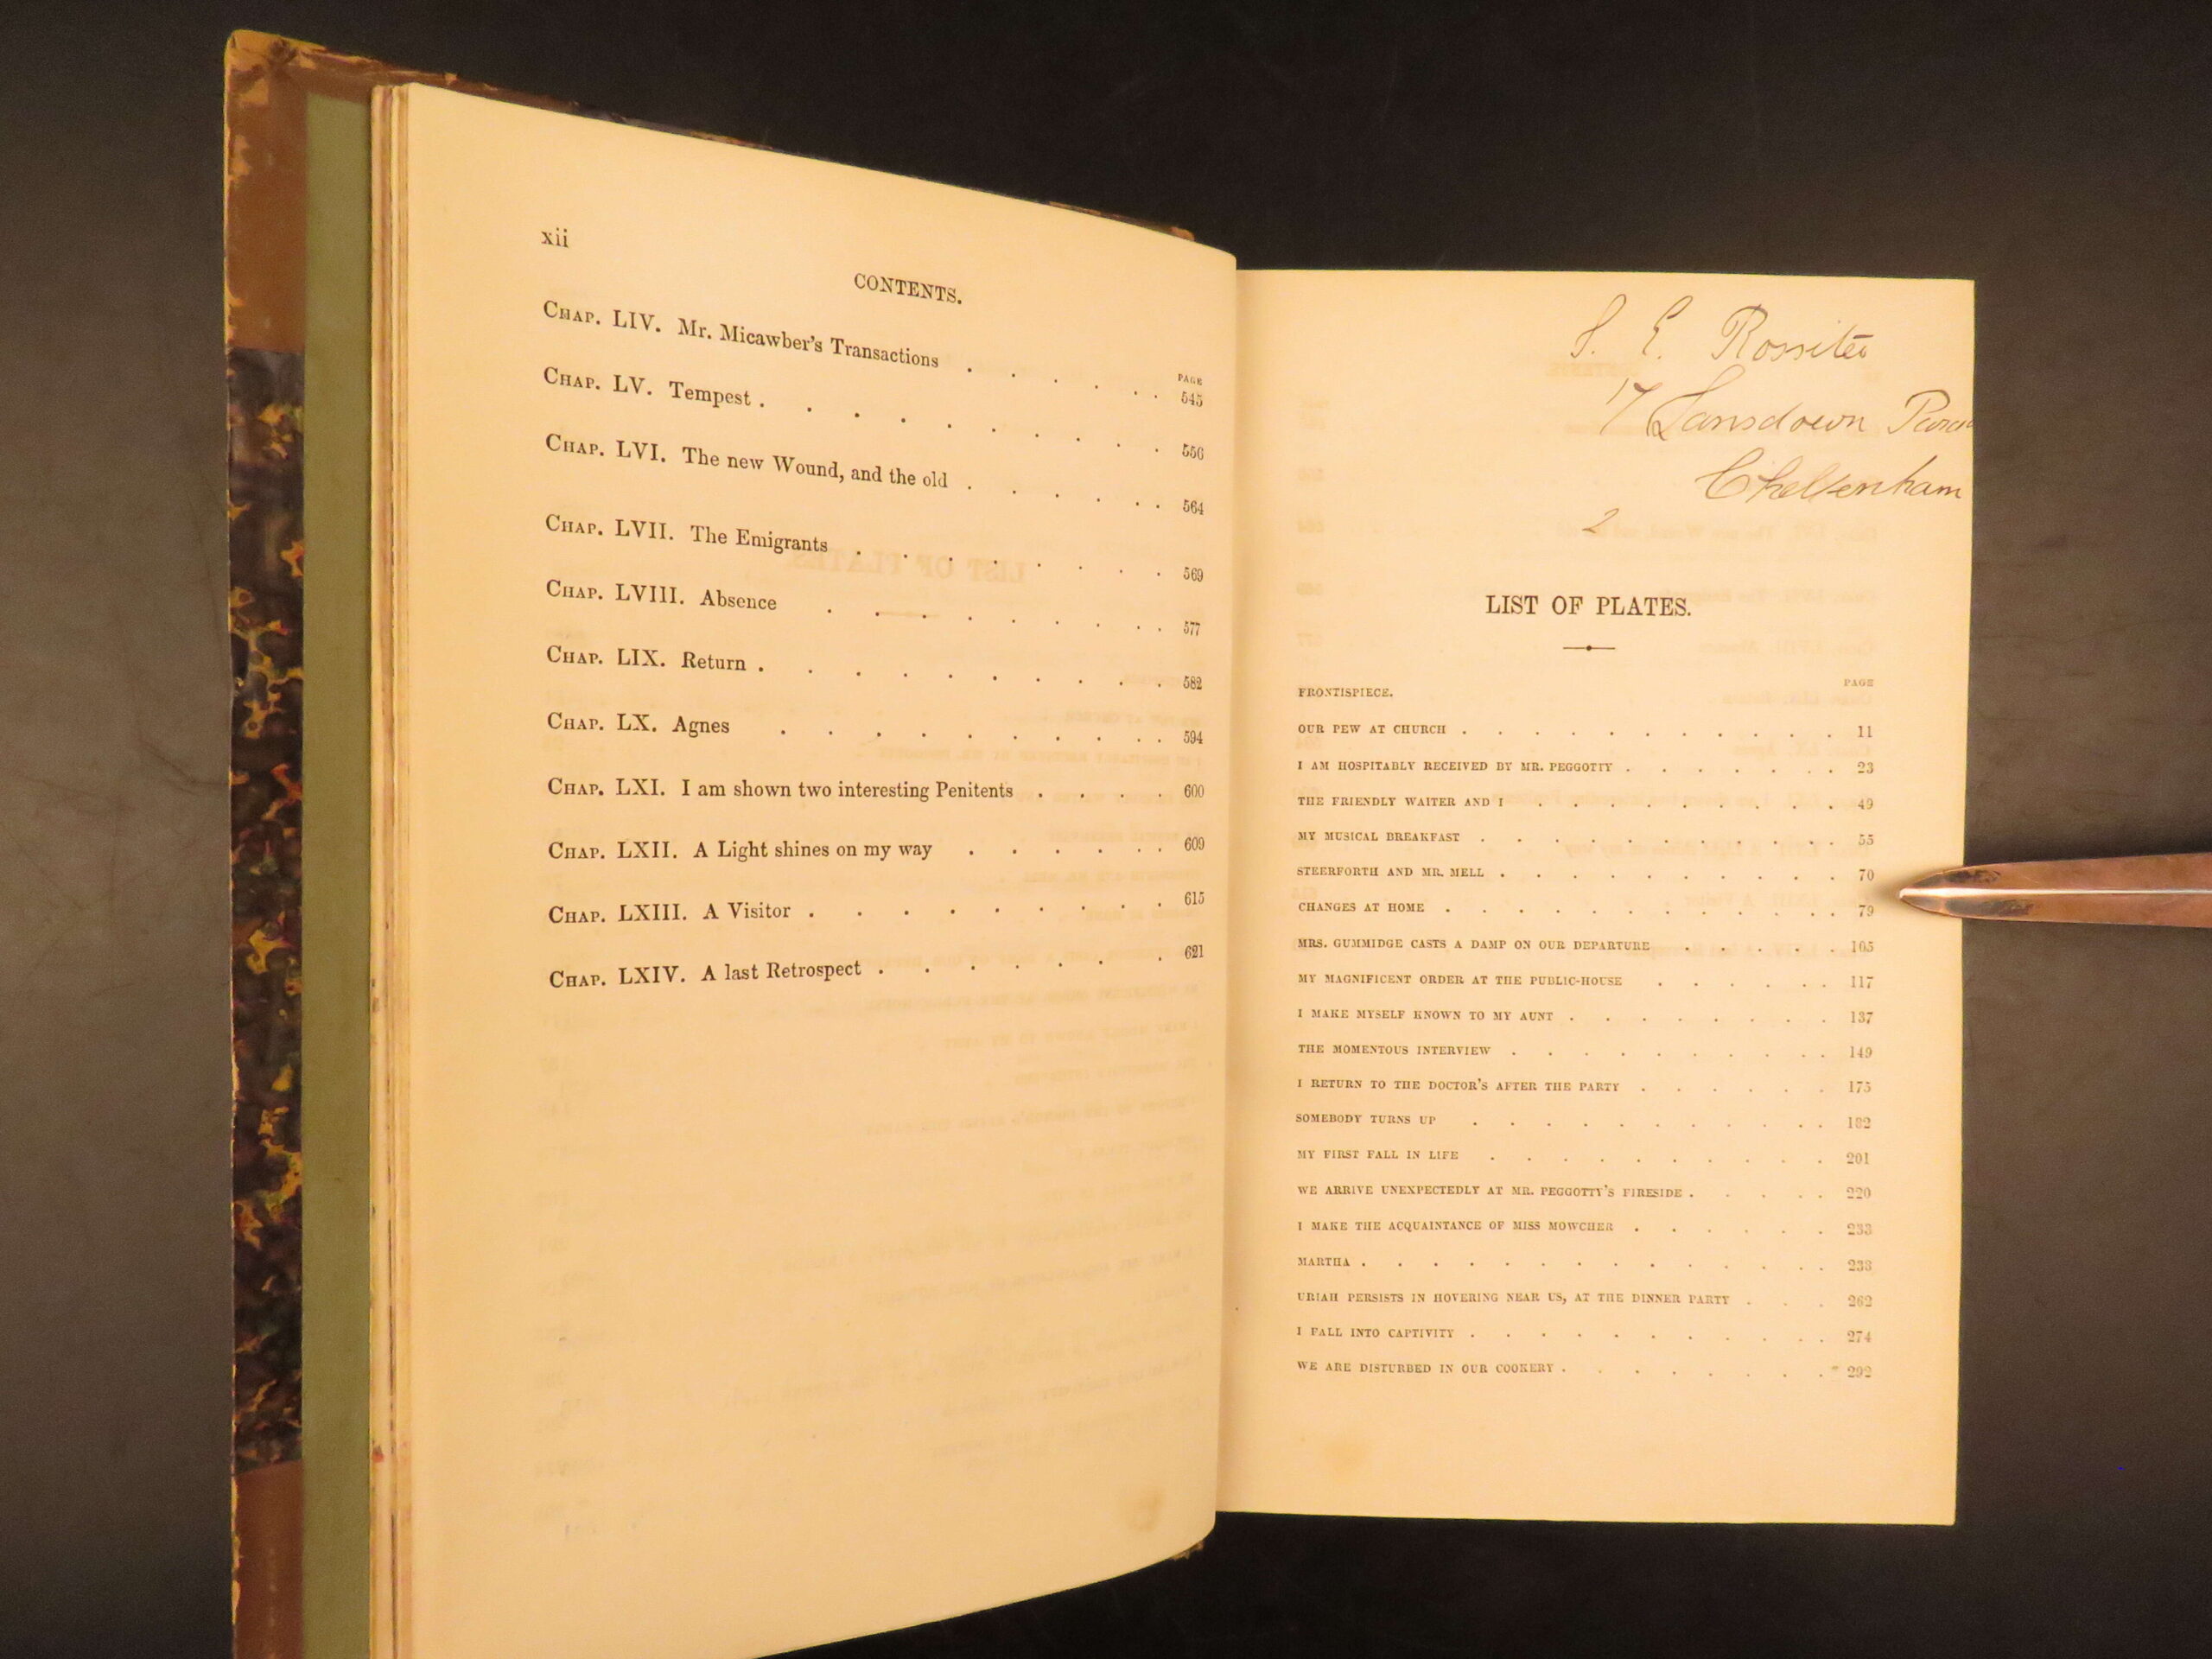 xii
CONTENTS.
PAGE
CHAP. LIV. Mr. Micawber's Transactions . . . . . . 545
CHAP. LV. Tempest . . . . . . . . . . 556
CHAP. LVI. The new Wound, and the old . . . . . . 564
CHAP. LVII. The Emigrants . . . . . . . . 569
CHAP. LVIII. Absence . . . . . . . . . 577
CHAP. LIX. Return . . . . . . . . . . 582
CHAP. LX. Agnes . . . . . . . . . . 594
CHAP. LXI. I am shown two interesting Penitents . . . . 600
CHAP. LXII. A Light shines on my way . . . . . . 609
CHAP. LXIII. A Visitor . . . . . . . . . 615
CHAP. LXIV. A last Retrospect . . . . . . . 621
S. E. Rossiter
17 Lansdown
Cheltenham
2
LIST OF PLATES.
PAGE
FRONTISPIECE.
OUR PEW AT CHURCH . . . . . . . . . . . 11
I AM HOSPITABLY RECEIVED BY MR. PEGGOTTY . . . . . . . 23
THE FRIENDLY WAITER AND I . . . . . . . . . 49
MY MUSICAL BREAKFAST . . . . . . . . . . . 55
STEERFORTH AND MR. MELL . . . . . . . . . . 70
CHANGES AT HOME . . . . . . . . . . . . 79
MRS. GUMMIDGE CASTS A DAMP ON OUR DEPARTURE . . . . . 105
MY MAGNIFICENT ORDER AT THE PUBLIC-HOUSE . . . . . . 117
I MAKE MYSELF KNOWN TO MY AUNT . . . . . . . . 137
THE MOMENTOUS INTERVIEW . . . . . . . . . . 149
I RETURN TO THE DOCTOR'S AFTER THE PARTY . . . . . . 175
SOMEBODY TURNS UP . . . . . . . . . . . 182
MY FIRST FALL IN LIFE . . . . . . . . . . 201
WE ARRIVE UNEXPECTEDLY AT MR. PEGGOTTY'S FIRESIDE . . . . . 220
I MAKE THE ACQUAINTANCE OF MISS MOWCHER . . . . . . 233
MARTHA . . . . . . . . . . . . . . 238
URIAH PERSISTS IN HOVERING NEAR US, AT THE DINNER PARTY . . . 262
I FALL INTO CAPTIVITY . . . . . . . . . . . 274
WE ARE DISTURBED IN OUR COOKERY . . . . . . . . 292